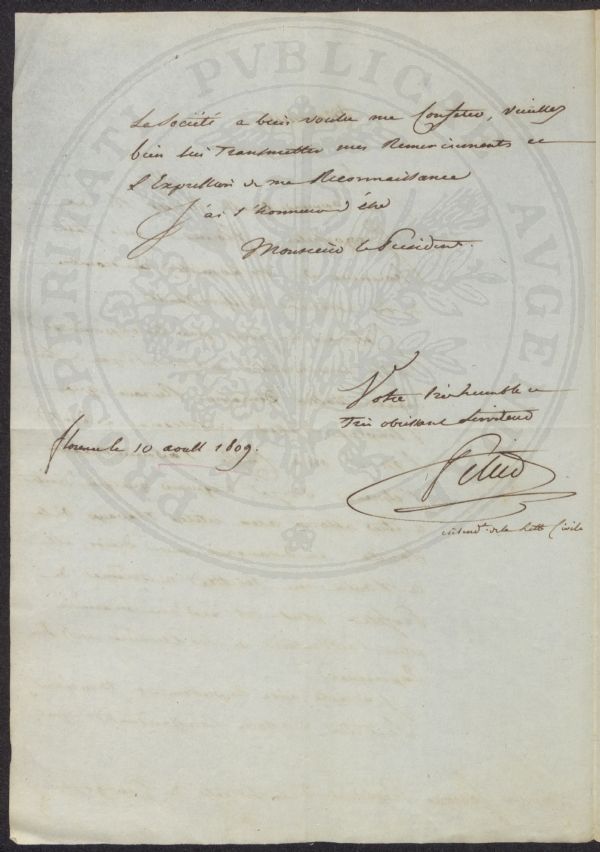 PROSPERITATI PVBLICAE AVGENDAE
La Société a bien voulu me Conferer, veuillez
bien lui Transmettre mes Remerciments et
L'Expression de ma Reconnaissance
J'ai l'honneur d'être
Monsieur le President.
Votre très humble et
Très obeissant Serviteur
florence le 10 aoust 1809.
intend.t de la Liste Civile